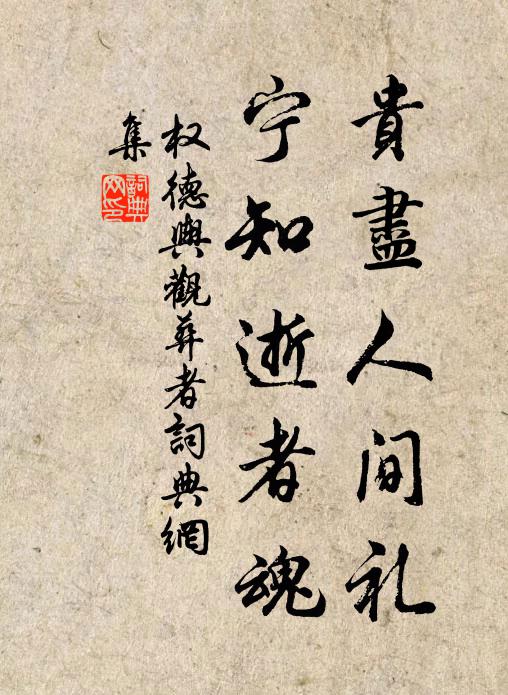 貴盡人间礼
宁知逝者魂
权德輿觀葬者詞典網
集
詞典
网印